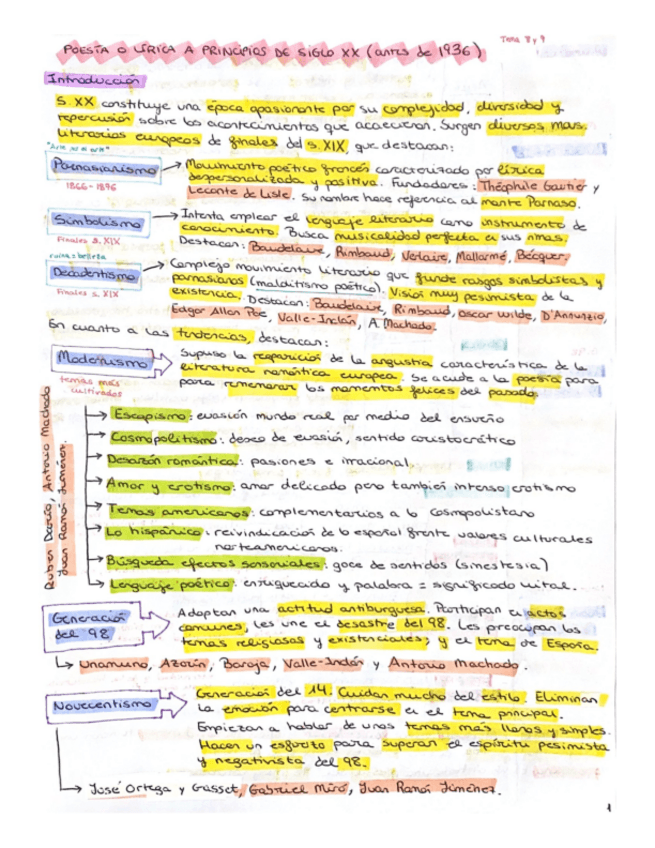 Tema 8 y 9
POESÍA O LÍRICA A PRINCIPIOS DE SIGLO XX (antes de 1936)
Introducción
S. XX constituye una época apasionante por su complejidad, diversidad y
repercusión sobre los acontecimientos que acaecieron. Surgen diversos movs.
literarios europeos de finales del s. XIX, que destacan:
"Arte por el arte"
Parnasianismo → Movimiento poético francés caracterizado por lírica
despersonalizada y positiva. Fundadores: Théophile Gautier y
1866 - 1896
Leconte de Lisle. Su nombre hace referencia al monte Parnaso.
Simbolismo → Intenta emplear el lenguaje literario como instrumento de
conocimiento. Busca musicalidad perfecta en sus rimas.
Finales s. XIX
Destacan: Baudelaire, Rimbaud, Verlaire, Mallarmé, Bécquer.
ruina = belleza
Decadentismo → Complejo movimiento literario que funde rasgos simbolistas y
parnasianos (malditismo poético). Visión muy pesimista de la
Finales s. XIX
existencia. Destacan: Baudelaire, Rimbaud, Oscar Wilde, D'Annunzio,
Edgar Allan Poe, Valle-Inclán, A. Machado.
En cuanto a las tendencias, destacan:
Modernismo → Supuso la reaparición de la angustia característica de la
literatura romántica europea. Se acude a la poesía para
para rememorar los momentos felices del pasado.
temas más
cultivados
Rubén Darío, Antonio Machado
Juan Ramón Jiménez.
→ Escapismo: evasión mundo real por medio del ensueño
→ Cosmopolitismo: deseo de evasión, sentido aristocrático
→ Desazón romántica: pasiones e irracional.
→ Amor y erotismo: amar delicado pero también intenso erotismo
→ Temas americanos: complementarios a lo cosmopolistano
→ Lo hispánico: reivindicación de lo español frente valores culturales
norteamericanos.
→ Búsqueda efectos sensoriales: goce de sentidos (sinestesia)
→ Lenguaje poético: enriquecido y palabra = significado vital.
Generación
del 98
Adoptan una actitud antiburguesa. Participan en actos
comunes, les une el desastre del 98. Les preocupan los
temas religiosos y existenciales; y el tema de España.
↳ Unamuno, Azorín, Baroja, Valle-Inclán y Antonio Machado.
Novecentismo
Generación del 14. Cuidan mucho del estilo. Eliminan
la emoción para centrarse en el tema principal.
Empiezan a hablar de unos temas más llanos y simples.
Hacen un esfuerzo para superar el espíritu pesimista
y negativista del 98.
→ José Ortega y Gasset, Gabriel Miró, Juan Ramón Jiménez.
1